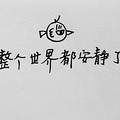 整个世界都安静了